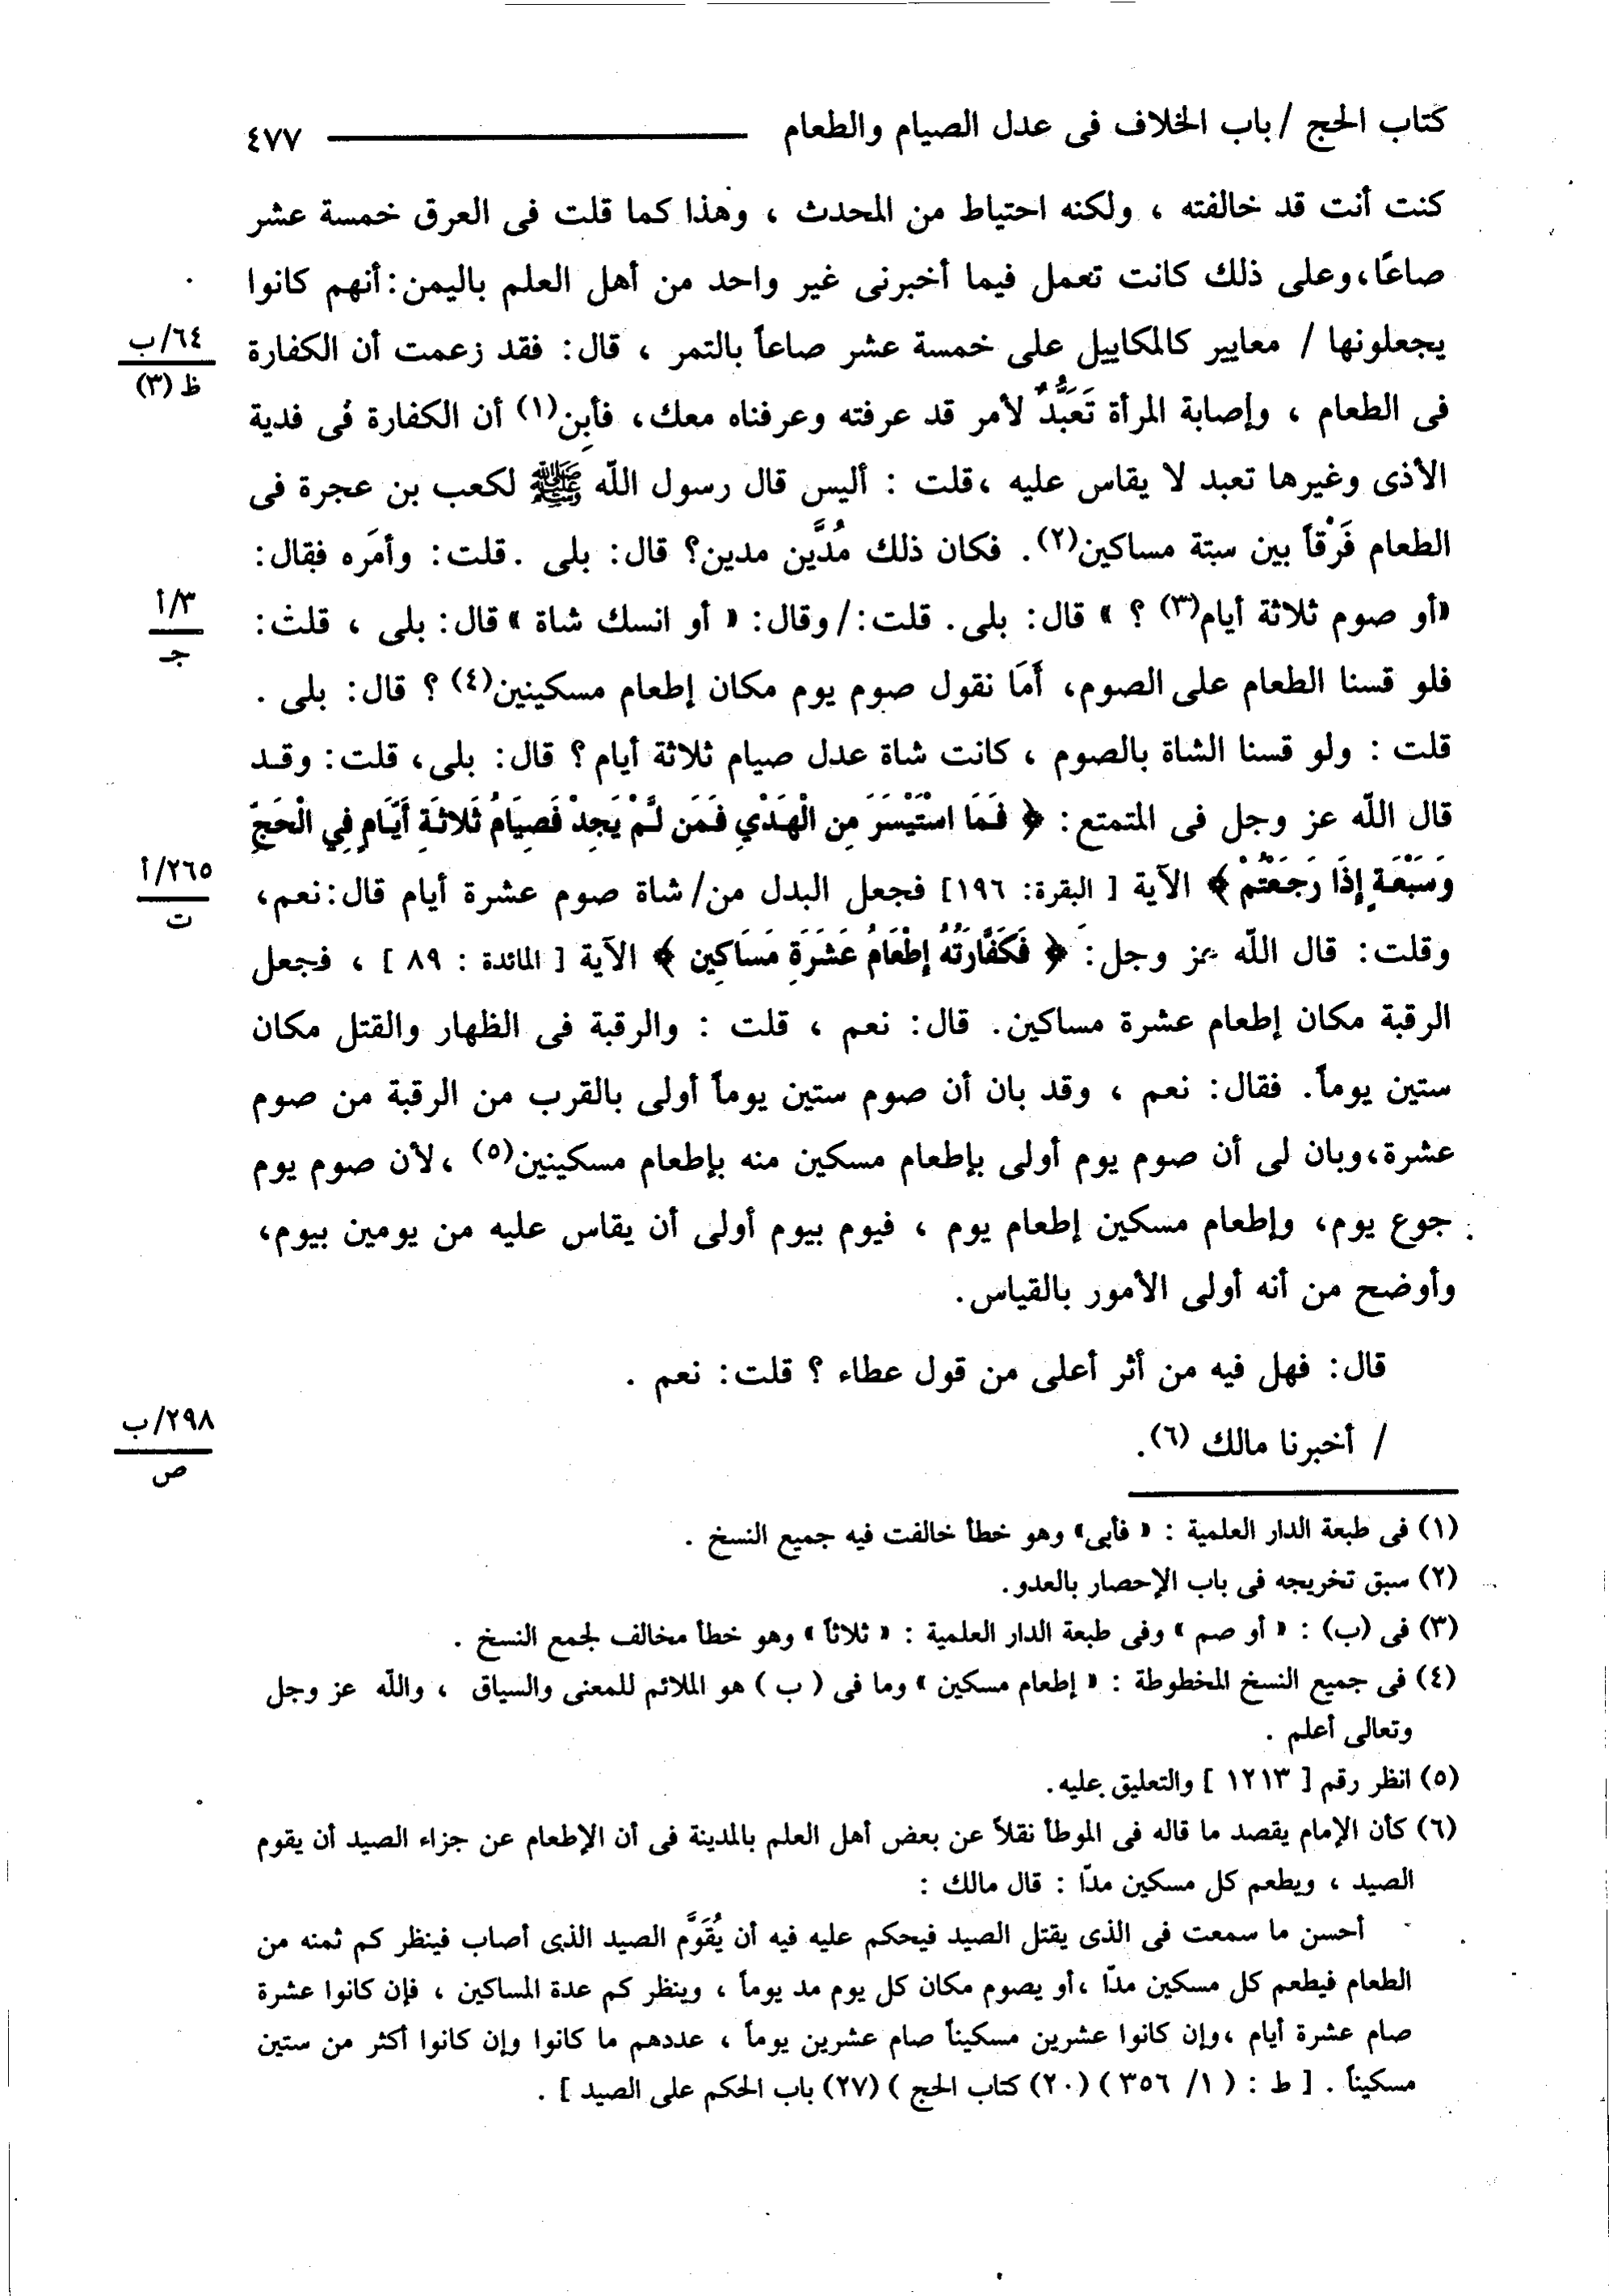 كتاب الحج / باب الخلاف فى عدل الصيام والطعام ـــــــــــــــــــــ ٤٧٧
كنت أنت قد خالفته ، ولكنه احتياط من المحدث ، وهذا كما قلت فى العرق خمسة عشر
صاعًا،وعلى ذلك كانت تعمل فيما أخبرنى غير واحد من أهل العلم باليمن:أنهم كانوا
يجعلونها / معايير كالمكاييل على خمسة عشر صاعاً بالتمر ، قال: فقد زعمت أن الكفارة
٦٤/ب
ظ (٣)
فى الطعام ، وإصابة المرأة تَعَبُّدٌ لأمر قد عرفته وعرفناه معك، فأبِن(١) أن الكفارة فى فدية
الأذى وغيرها تعبد لا يقاس عليه ،قلت : أليس قال رسول اللّه ﷺ لكعب بن عجرة فى
الطعام فَرْقاً بين ستة مساكين(٢). فكان ذلك مُدَّين مدين؟ قال: بلى .قلت: وأمَره فقال:
«أو صوم ثلاثة أيام(٣) ؟ » قال: بلى. قلت:/ وقال: « أو انسك شاة » قال: بلى ، قلت:
٣/أ
جـ
فلو قسنا الطعام على الصوم، أمَا نقول صوم يوم مكان إطعام مسكينين(٤) ؟ قال: بلى .
قلت : ولو قسنا الشاة بالصوم ، كانت شاة عدل صيام ثلاثة أيام ؟ قال: بلى، قلت: وقـد
قال اللّه عز وجل فى المتمتع: ﴿ فَمَا اسْتَيْسَرَ مِنَ الْهَدْيِ فَمَن لَّمْ يَجِدْ فَصِيَامُ ثَلاثَةِ أَيَّامٍ فِي الْحَجِّ
وَسَبْعَةٍ إِذَا رَجَعْتُمْ ﴾ الآية [ البقرة: ١٩٦] فجعل البدل من/ شاة صوم عشرة أيام قال:نعم،
٢٦٥/أ
ت
وقلت: قال اللّه عز وجل: ﴿ فَكَفَّارَتُهُ إِطْعَامُ عَشَرَةِ مَسَاكِينَ ﴾ الآية [ المائدة : ٨٩ ] ، فجعل
الرقبة مكان إطعام عشرة مساكين. قال: نعم ، قلت : والرقبة فى الظهار والقتل مكان
ستين يوماً. فقال: نعم ، وقد بان أن صوم ستين يوماً أولى بالقرب من الرقبة من صوم
عشرة،وبان لى أن صوم يوم أولى بإطعام مسكين منه بإطعام مسكينين(٥) ،لأن صوم يوم
جوع يوم، وإطعام مسكين إطعام يوم ، فيوم بيوم أولى أن يقاس عليه من يومين بيوم،
وأوضح من أنه أولى الأمور بالقياس.
قال: فهل فيه من أثر أعلى من قول عطاء ؟ قلت: نعم .
/ أخبرنا مالك (٦).
٢٩٨/ب
ص
(١) فى طبعة الدار العلمية : « فأبى» وهو خطأ خالفت فيه جميع النسخ .
(٢) سبق تخريجه فى باب الإحصار بالعدو.
(٣) فى (ب) : « أو صم » وفى طبعة الدار العلمية : « ثلاثاً » وهو خطأ مخالف لجمع النسخ .
(٤) فى جميع النسخ المخطوطة : « إطعام مسكين » وما فى ( ب ) هو الملائم للمعنى والسياق ، واللّه عز وجل
وتعالى أعلم .
(٥) انظر رقم [ ١٢١٣ ] والتعليق عليه.
(٦) كأن الإمام يقصد ما قاله فى الموطأ نقلاً عن بعض أهل العلم بالمدينة فى أن الإطعام عن جزاء الصيد أن يقوم
الصيد ، ويطعم كل مسكين مدّا : قال مالك :
أحسن ما سمعت فى الذى يقتل الصيد فيحكم عليه فيه أن يُقَوَّم الصيد الذى أصاب فينظر كم ثمنه من
الطعام فيطعم كل مسكين مدّا ،أو يصوم مكان كل يوم مد يوماً ، وينظر كم عدة المساكين ، فإن كانوا عشرة
صام عشرة أيام ،وإن كانوا عشرين مسكيناً صام عشرين يوماً ، عددهم ما كانوا وإن كانوا أكثر من ستين
مسكيناً . [ ط : ( ١/ ٣٥٦ ) (٢٠) كتاب الحج ) (٢٧) باب الحكم على الصيد ] .